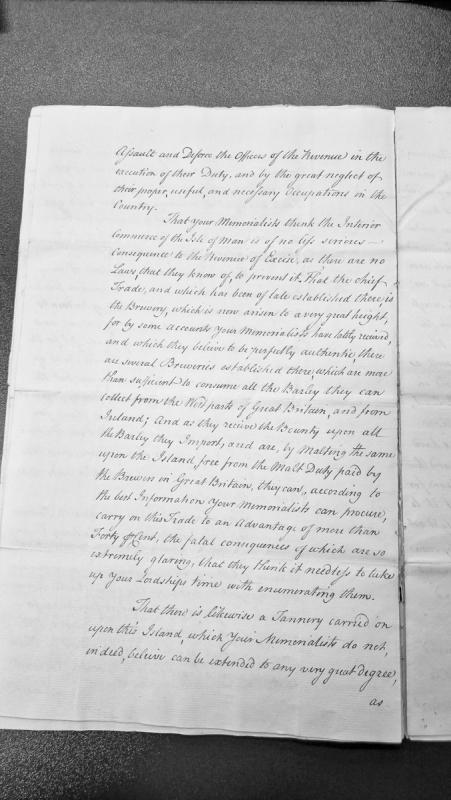 Assault and Deforce the Officers of the Revenue in the
execution of their Duty, and by the great neglect of
their proper, useful, and necessary Occupations in the
Country.
That your Memorialists think the Interior
Commerce of the Isle of Man is of no less serious
Consequence to the Revenue of Excise, as there are no
Laws, that they know of, to prevent it. That the chief
Trade, and which has been of late established there, is
the Brewery, which is now arisen to a very great height,
for by some accounts your Memorialists have lately received,
and which they believe to be perfectly authentic, there
are several Breweries established there, which are more
than sufficient to consume all the Barley they can
Collect from the West parts of Great Britain, and from
Ireland; And as they receive the Bounty upon all
the Barley they Import, and are, by Malting the same
upon the Island, free from the Malt Duty paid by
the Brewers in Great Britain, they can, according to
the best Information your Memorialists can procure,
carry on this Trade to an Advantage of more than
Forty ⅌ Cent, the fatal consequences of which are so
extremely glaring, that they think it needless to take
up your Lordships time with enumerating them.
That there is likewise a Tannery carried on
upon this Island, which Your Memorialists do not,
indeed, beleive can be extended to any very great degree,
as